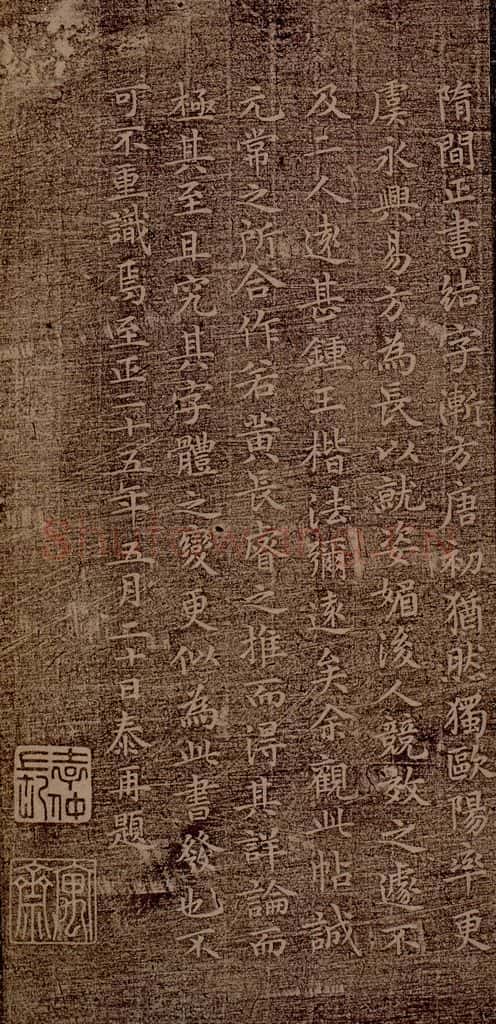 隋間正書結字漸方唐初猶然獨歐陽率更
虞永興易方為長以就姿媚後人競效之遽不
及二人遠甚鍾王楷法彌遠矣余觀此帖誠
元常之所合作若黃長睿之推而得其詳論而
極其至且究其字體之變更似為此書發也不
可不重識焉至正二十五年五月二十日泰再題